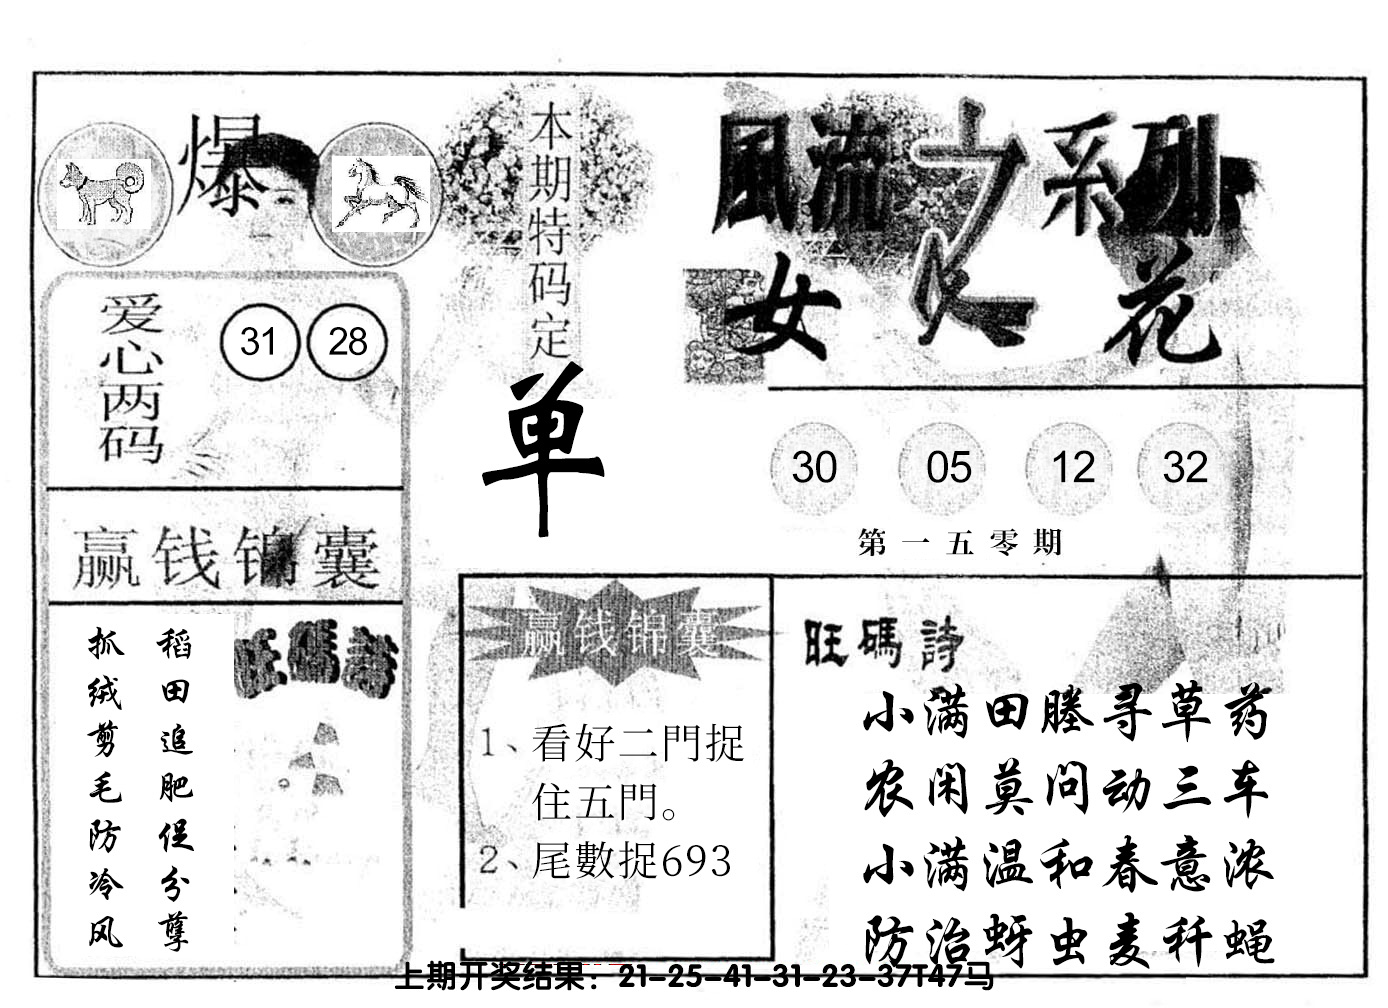 爆
爱心两码
31 28
赢钱锦囊
稻田追肥促分孽
抓绒剪毛防冷风
旺碼詩
本期特码定
单
風流之系列
女人花
30 05 12 32
第一五零期
赢钱锦囊
1、看好二門捉
住五門。
2、尾數捉693
旺碼詩
小满田塍寻草药
农闲莫问动三车
小满温和春意浓
防治蚜虫麦秆蝇
上期开奖结果：21-25-41-31-23-37T47马